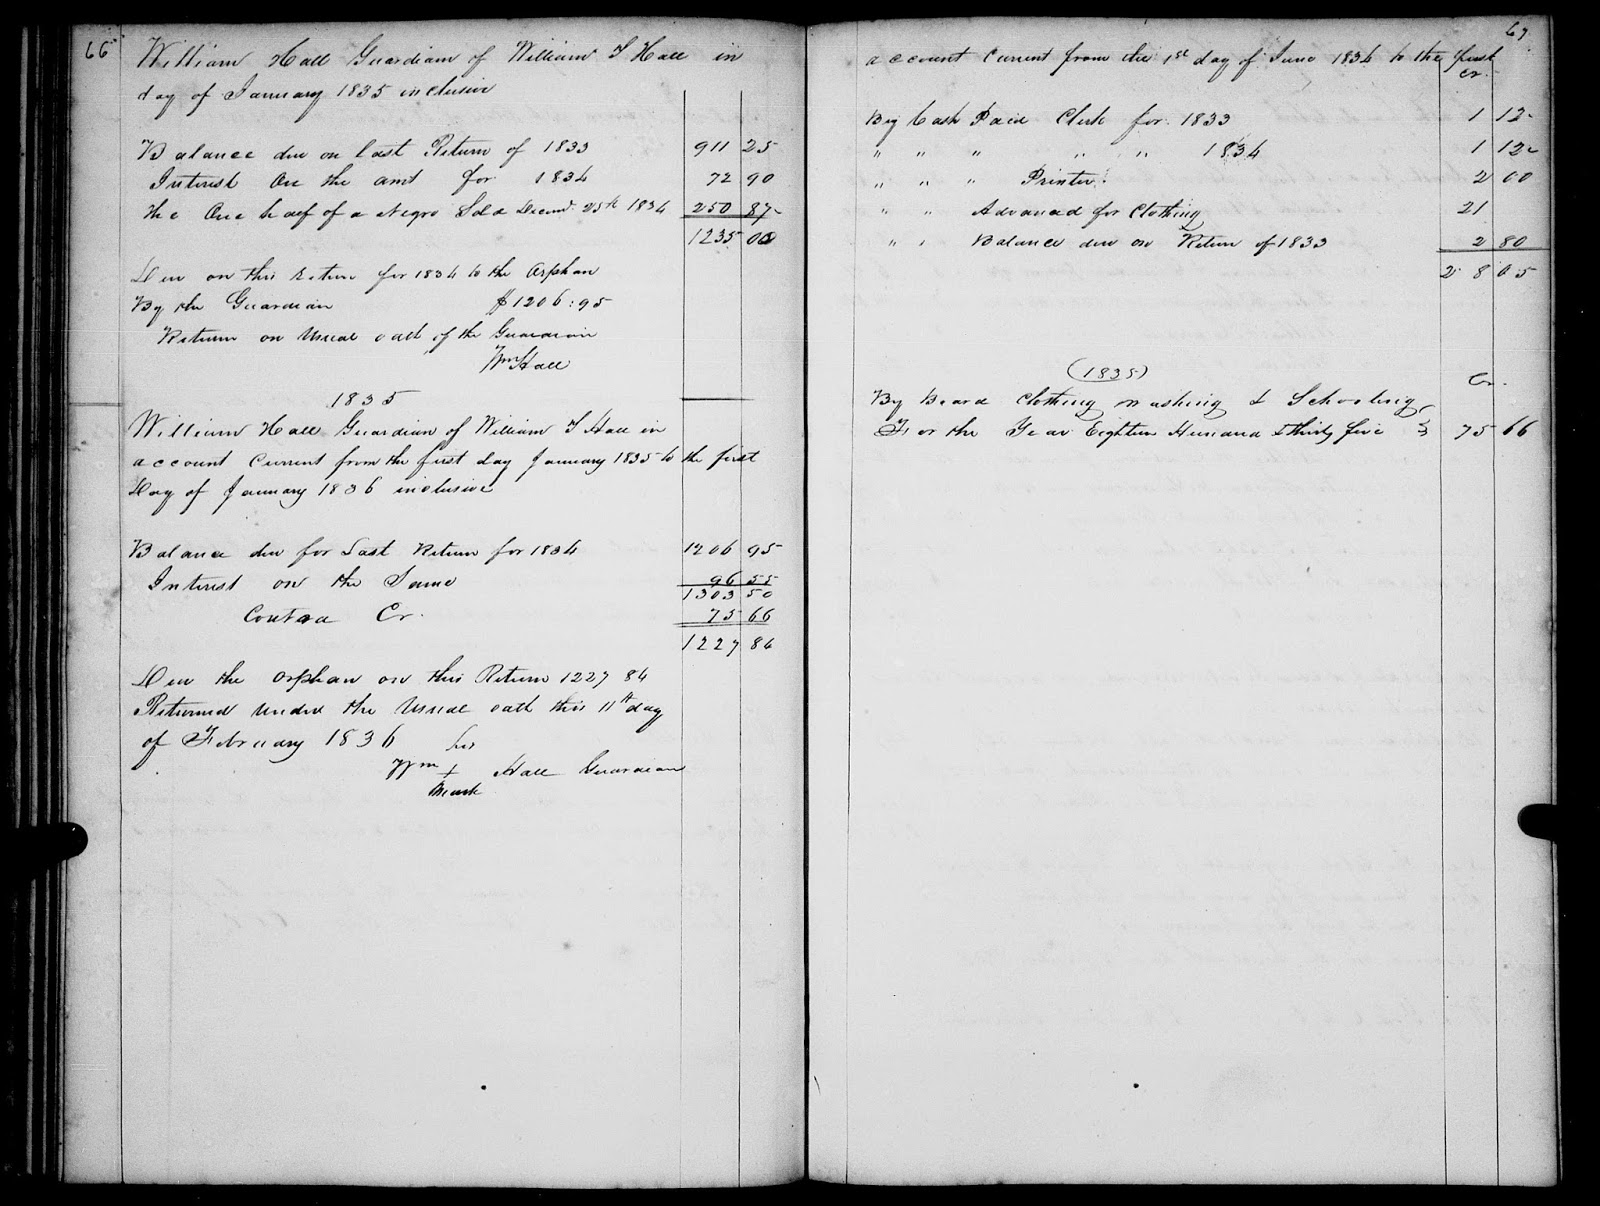 66
William Hall Guardian of William T Hall in
day of January 1835 inclusive
Balance due on last Return of 1833 911 25
Interest On the amt for 1834 72 90
the One half of a Negro Sold Decemr 25th 1834 250 87
1235 00
Due on this Return for 1834 to the Orphan
By the Guardian $1206:95
Return on Usual oath of the Guardian
Wm Hall
1835
William Hall Guardian of William T Hall in
account Current from the first day January 1835 to the first
Day of January 1836 inclusive
Balance due for Last Return for 1834 1206 95
Interest on the Same 96 55
1303 50
Contra Cr. 75 66
1227 84
Due the orphan on this Return 1227 84
Returned under the Usual oath this 11th day
of February 1836
his
Wm + Hall Guardian
Mark
67
account Current from the 1st day of June 1834 to the first
Cr.
By Cash Paid Clerk for 1833 1 12
" " " " " 1834 1 12
" " " Printer. 2 00
" " Advanced for Clothing 21
" " Balance due on Return of 1833 2 80
28 05
(1835)
Cr.
By Board Clothing washing & Schooling
For the Year Eighteen Hundred & thirty five 75 66